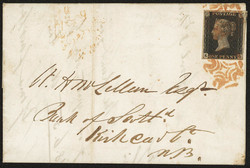 POSTAGE
W. H. McLellan Esqr.
Bank of Scotd.
Kirkcudt.
N.B.